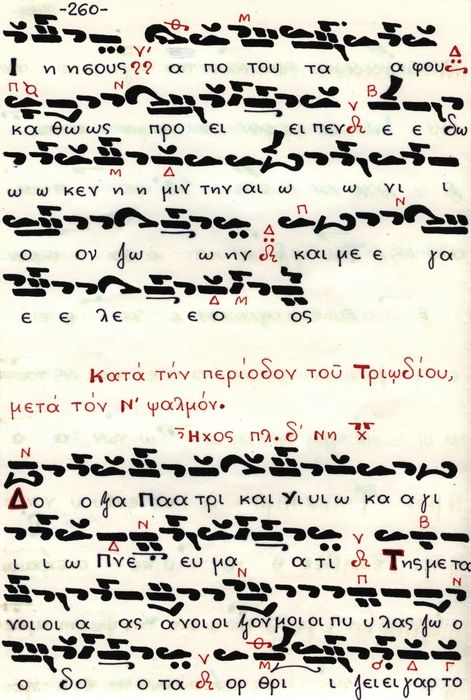 -260-
Ι η ησους α πο του τα α φου
κα θω ως προ ει ει πεν ε ε δω
ω ω κεν η η μιν την αι ω ω νι ι
ο ον ζω ω ην και με ε γα
ε ε ε λε ε ο ος
Κατά τήν περίοδον τοῦ Τριῳδίου,
μετά τόν Ν' ψαλμόν.
Ἦχος πλ. δ' Νη
Δο ο ξα Παα τρι και Υι υι ω κα α γι
ι ι ω Πνε ε ευ μα α τι Της με τα
νοι οι α α ας α νοι οι ξον μοι οι πυ υ λας ζω ο
ο δο ο τα ορ θρι ι ι ζει ει γαρ το